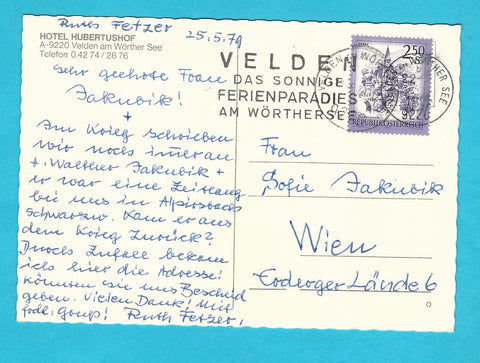 Ruth Fetzer
25.5.79
HOTEL HUBERTUSHOF
A-9220 Velden am Wörther See
Telefon 0 42 74 / 26 76
Sehr geehrte Frau
Jakubik!
+
Am Krieg schrieben
wir noch immer an
+. Walther Jakubik +
er war eine Zeitlang
bei uns in Alpirsbach
Schwarzw. Kam er aus
dem Krieg Zurück?
Durch Zufall bekam
ich hier die Adresse!
Könnten sie uns Bescheid
geben. Vielen Dank! Mit
frdl. Ruth Fetzer,
VELDEN
DAS SONNIGE
FERIENPARADIES
AM WÖRTHERSEE
VELDEN AM WÖRTHER SEE
9220
2.50
REPUBLIK ÖSTERREICH
Frau
Sofie Jakubik
Wien
Lände 6